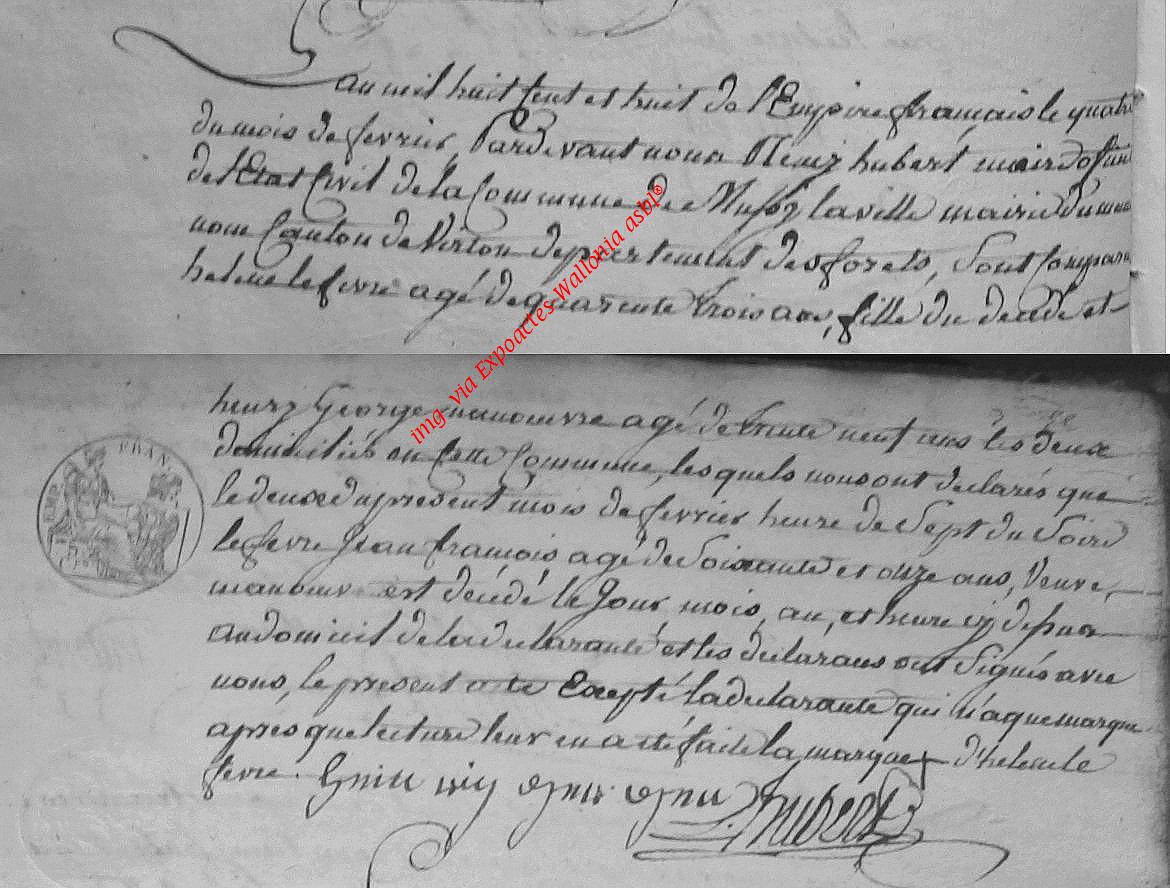 au mil huit cent et huit de l'Empire français le quatre
du mois de fevrier, Pardevant nous Remy hubert maire
de l'Etat Civil de la Commune de Mussy la ville mairie du meme
nom Canton de Virton departement des forets, Sont Comparu
helene le fevre agé de quarente trois ans, fille du decedé et
img- via Expoactes Wallonia asbl©
henry George manoeuvre agé de trente neuf ans les deux
domiciliés en Cette Commune, les quels nous ont declarés que
le deuxe du present mois de fevrier heure de Sept du Soire
le fevre Jean françois agé de Soixante et onze ans, Veuve,
manoeuv est décédé le Jour, mois, an, et heure cy depuis
au domicil de la declarante, et les declarans ont Signés avec
nous, le present acte Excepté la declarante qui n'a que marque
après que lecture leur en a eté faite la marque + d'helene le
fevre.
hubert
EMP. FRAN.